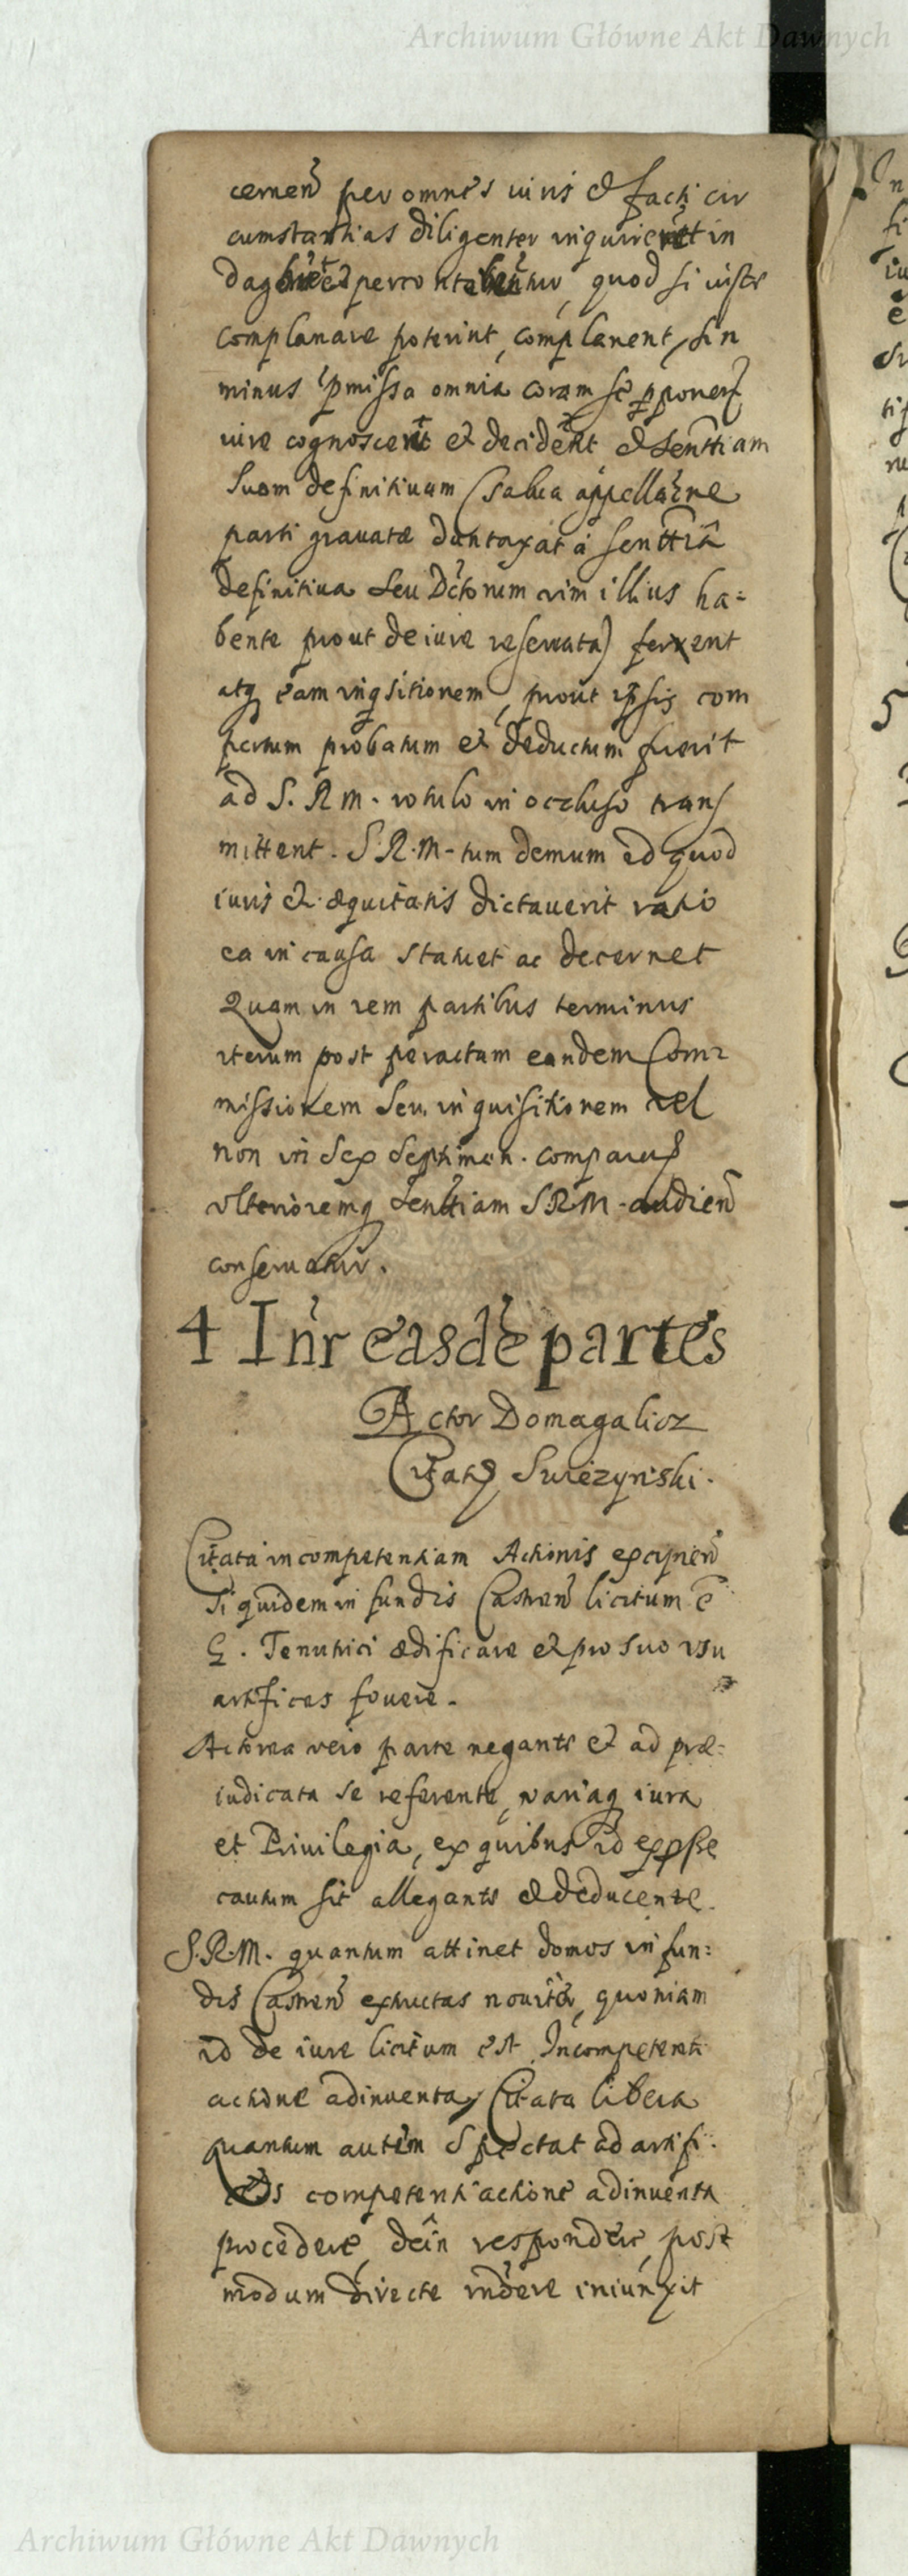 Archiwum Główne Akt Dawnych
cernen per omnes iuris et facti cir
cumstantias diligenter inquirent in
dag et percontabuntur, quod si iuste
complanare poterint, complanent, sin
minus pmissa omnia coram se pponen
iure cognoscent et decident et senttiam
suam definitiuam (salua appellaene
parti grauatæ duntaxat á senttia
definitiua seu Dctorum vim illius ha=
bente prout de iure reseruata) ferent
atq eam inqsitionem, prout ipsis com
pertum probatum et deductum fuerit
ad S. R M. rotulo in occluso trans
mittent. S.R.M. tum demum id quod
iuris et æquitatis dictauerit ratio
ea in causa statuet ac decernet
Quam in rem partibus terminus
iterum post peractam eandem Com=
missionem seu inquisitionem vel
non in sex septiman. comparens
vlterioremq senttiam S.R.M. audien
conseruatur.
4 Inr easde partes
Actor Domagalicz
Citats Swiezynski.
Citata incompetentiam Actionis excipien
Siquidem in fundis Castren licitum e
G. Tenutrici ædificare et pro suo vsu
artifices fouere.
Actorea vero parte negante et ad præ=
iudicata se referente, variaq iura
et Priuilegia, ex quibus id exppsse
cautum sit allegante et deducente.
S.R.M. quantum attinet domos in fun=
dis Castren extructas nouit, quoniam
id de iure licitum est, Incompetenti
actione adinuenta, Citata libera
quantum autem spectat ad artifi.
ces competenti actione adinuenta
procedere, dein respondere, post
modum directe rndere iniunxit
Archiwum Główne Akt Dawnych